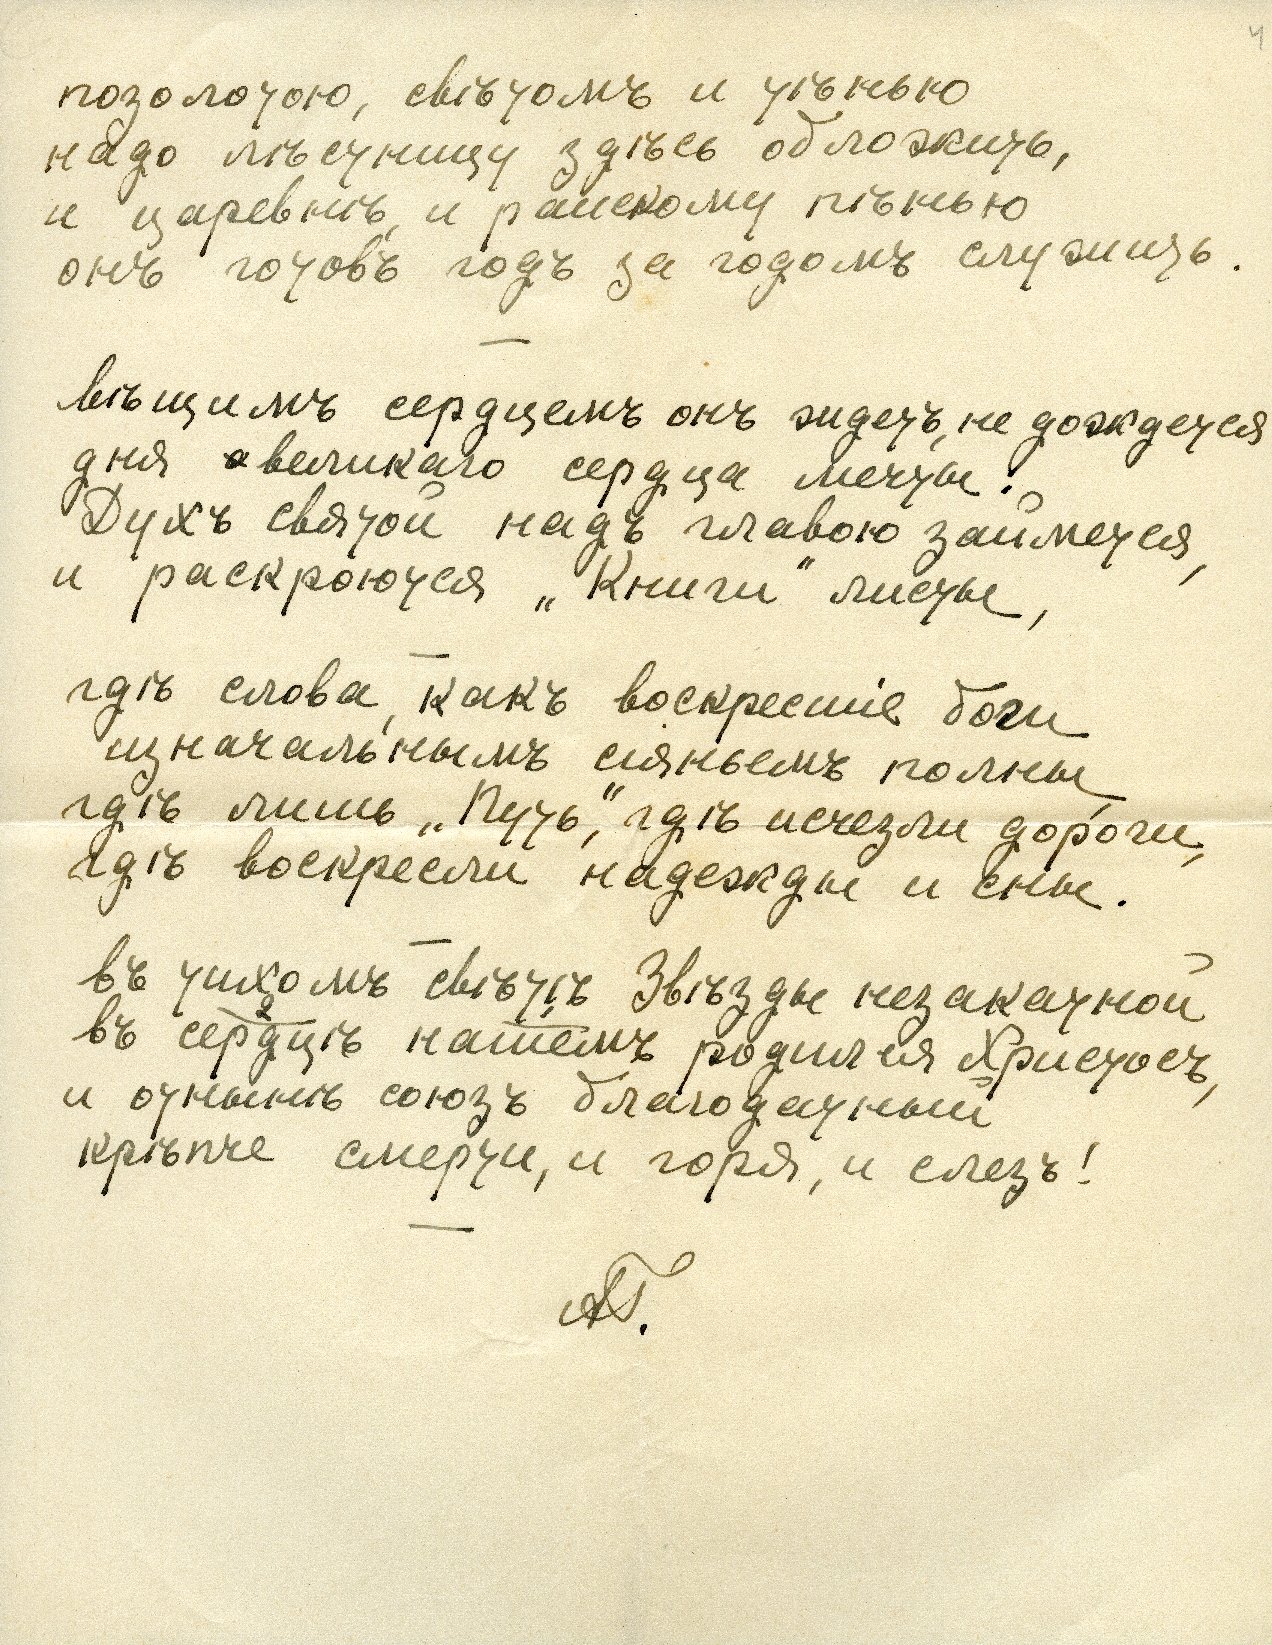 4
позолотою, свѣтомъ и тѣнью
надо лѣстницу здѣсь обложить,
и царевнѣ, и райскому пѣнью
онъ готовъ годъ за годомъ служить.
—
вѣщимъ сердцемъ онъ ждетъ, не дождется
дня великаго сердца мечты!
Духъ святой надъ главою займется,
и раскроются „Книги" листы,
—
гдѣ слова, какъ воскресшіе боги
изначальнымъ сіяньемъ полны,
гдѣ лишь „Путь", гдѣ исчезли дороги,
гдѣ воскресли надежды и сны.
—
въ тихомъ свѣтѣ Звѣзды незакатной
въ сердцѣ нашемъ родился Христосъ,
и отнынѣ союзъ благодатный
крѣпче смерти, и горя, и слезъ!
—
АБ.